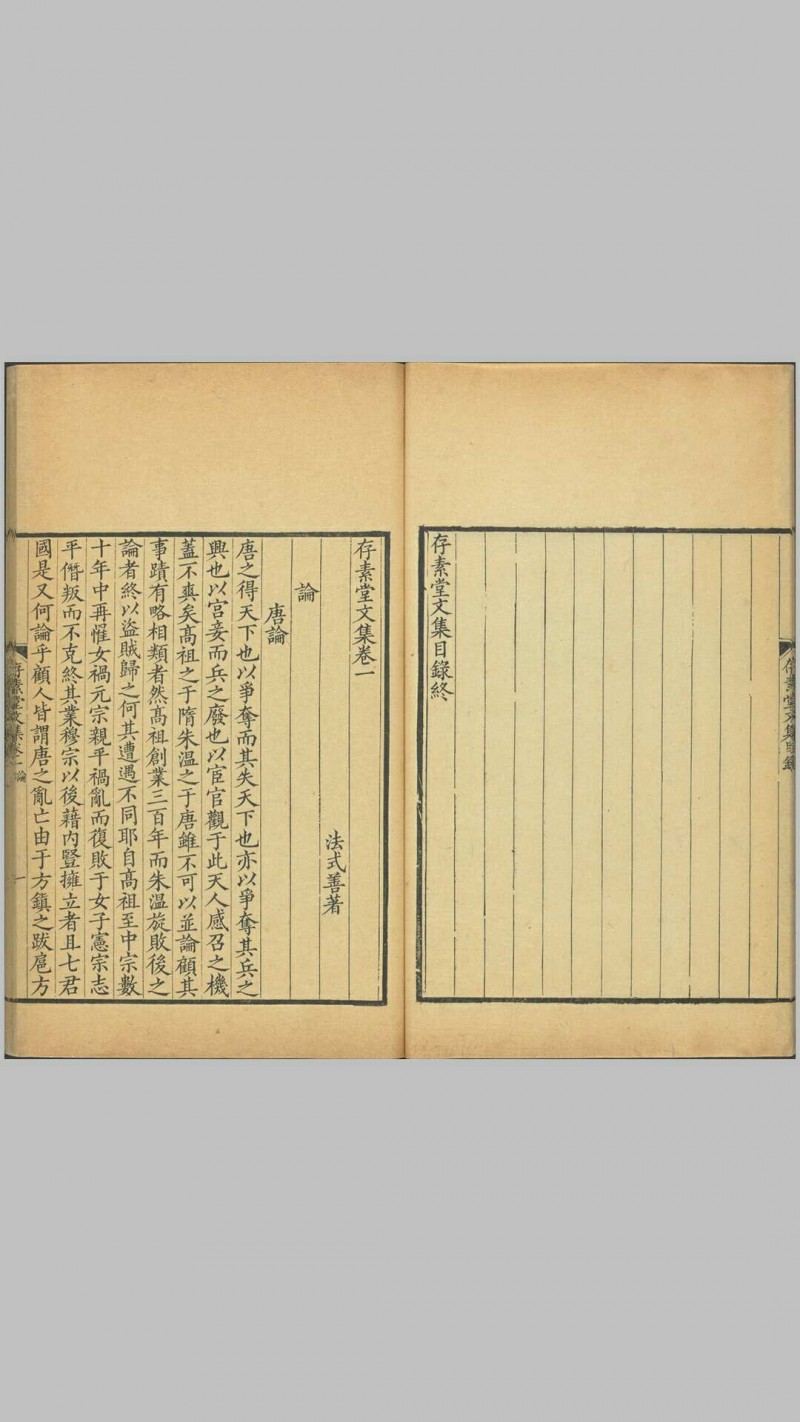 存素堂文集目錄
存素堂文集目錄終
存素堂文集卷一
法式善著
論
唐論
唐之得天下也以爭奪而其失天下也亦以爭奪其兵之
興也以宮妾而兵之廢也以宦官觀于此天人感召之機
蓋不爽矣髙祖之于隋朱溫之于唐雖不可以並論顧其
事蹟有略相類者然髙祖創業三百年而朱溫旋敗後之
論者終以盜賊歸之何其遭遇不同耶自髙祖至中宗數
十年中再罹女禍元宗親平禍亂而復敗于女子憲宗志
平僭叛而不克終其業穆宗以後藉內豎擁立者且七君
國是又何論乎顧人皆謂唐之亂亡由于方鎮之跋扈方
存素堂文集卷一 論
一